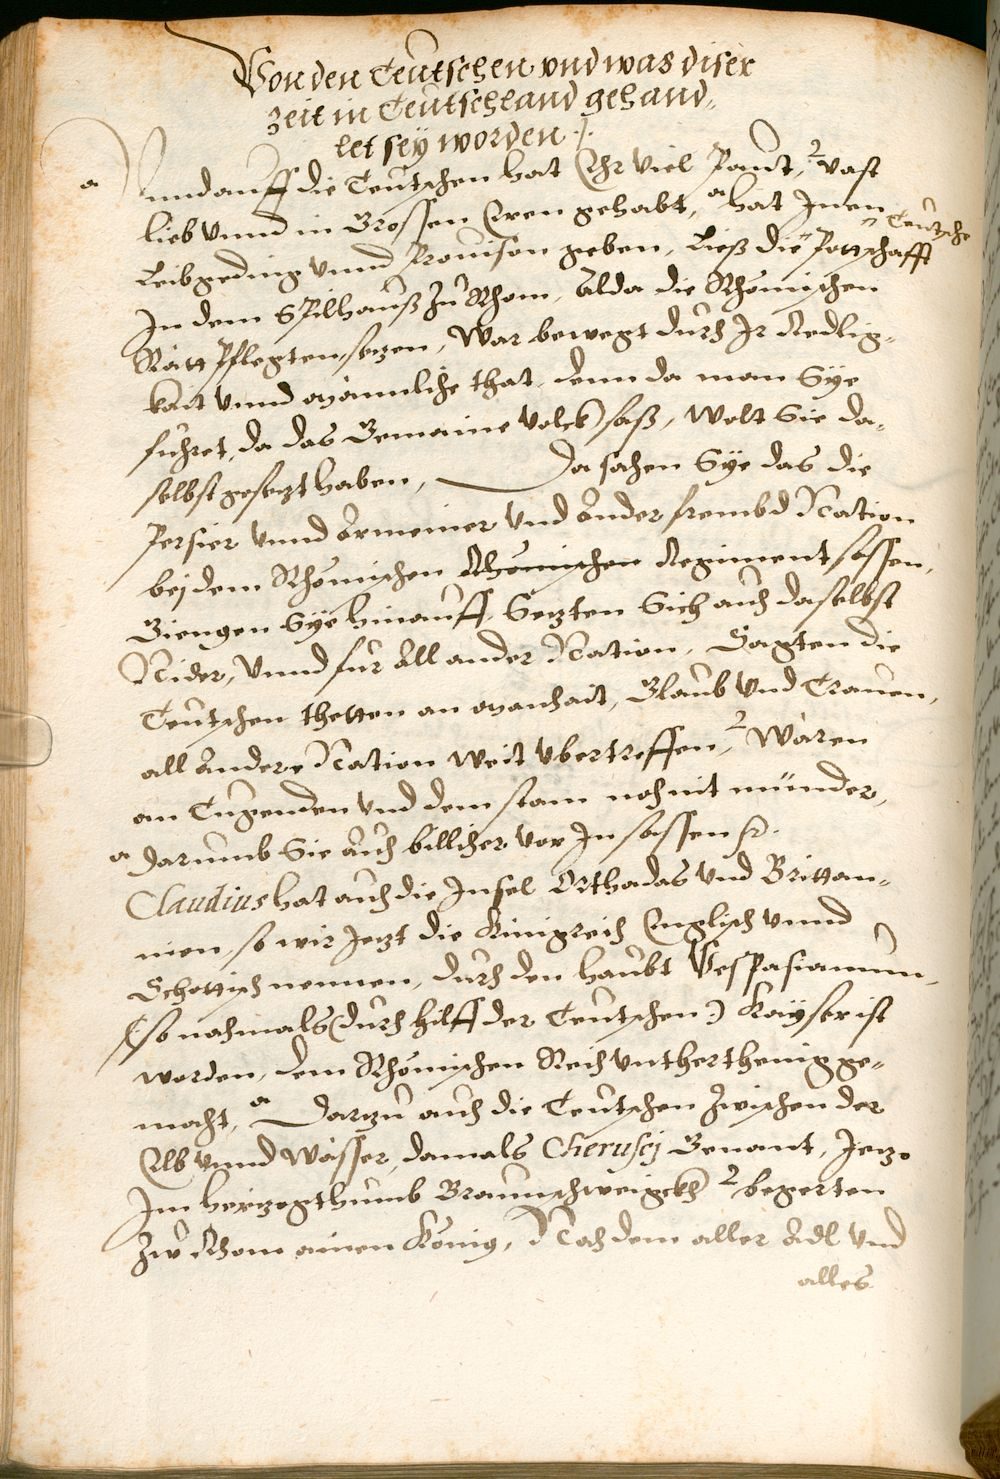 Von den Teutschen vnd was diser
zeit in Teutschland gehand„
let sey worden ·/.
Unnd auff die Teutschen hat Ehr viel Paut, vast
lieb vnnd in Grossen Eren gehabt, hat Inen
Leibgeding vnnd Prouison geben, Ließ die Teutsche Pottschafft
In dem Spilhauß zu Rhom, Alda die Rhömischen
Rätt Pflegten, sezen, War bewegt durch Ir Redlig„
kait vnnd mannliche that, denn da man Sye
fuhret, da das Gemaine volckh saß, Wolt Sie da„
selbst gesezt haben, Da sahen Sye das die
Persier vnnd Armeinier vnd Ander frembd Nation
bej dem Rhömischen Rhömischen Regiment sassen,
Giengen Sye hinauff, Sezten Sich auch daselbst
Nider, Vnnd fur All ander Nation, Sagten die
Teutschen thetten an manhait, Glaub vnd Trauen,
all Andere Nation weit vbertreffen, Wären
an Tugenden vnd dem stam noh nit minder,
darumb Sie auch billicher vor In sassen
Claudius hat auch die Insel Orthadas vnd Brittan„
nien, so wir Jezt die Kinigreich Englisch vnnd
Schottisch nennen, durch den haubt Vespasianum
(so nahmals (durch hilff der Teutschen) Kayser ist
worden, dem Rhömischen Reich vnthertheinig ge„
macht, Darzu auch die Teutschen zwischen der
Elb vnnd Wässer, damals Cheruscj Genant, Jezo
Im herzogthumb Braunschweigckh begerten
Zu Rhom ainen König, Nach dem aller Adl vnd
alles